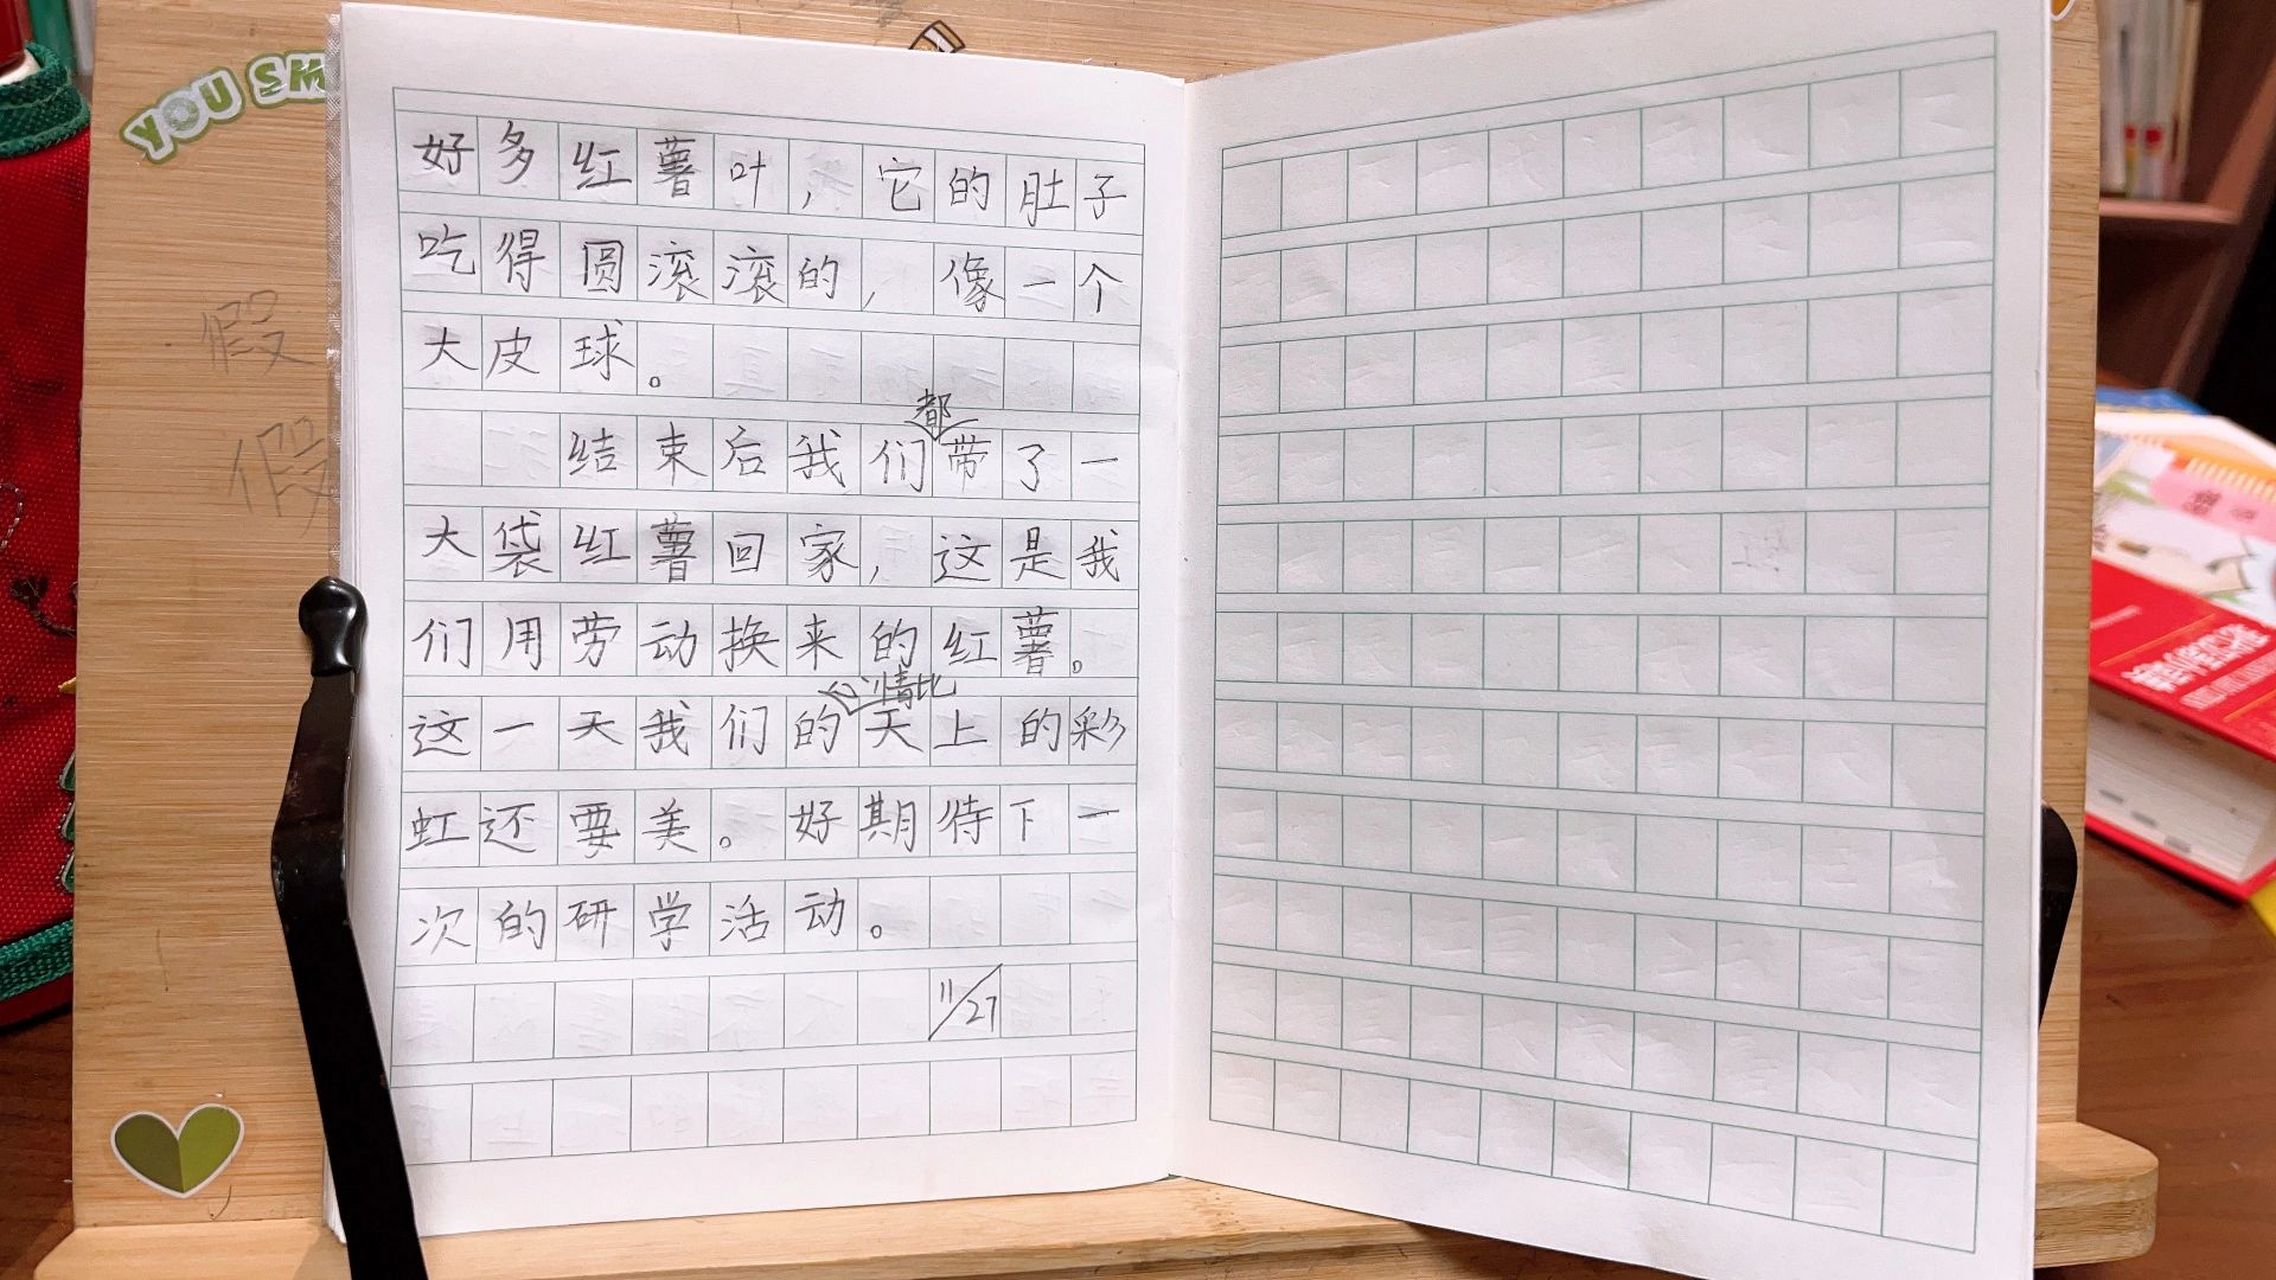 YOU SM
假
假
好多红薯叶，它的肚子
吃得圆滚滚的，像一个
大皮球。
结束后我们都带了一
大袋红薯回家，这是我
们用劳动换来的红薯。
这一天我们的心情比天上的彩
虹还要美。好期待下一
次的研学活动。
11/27